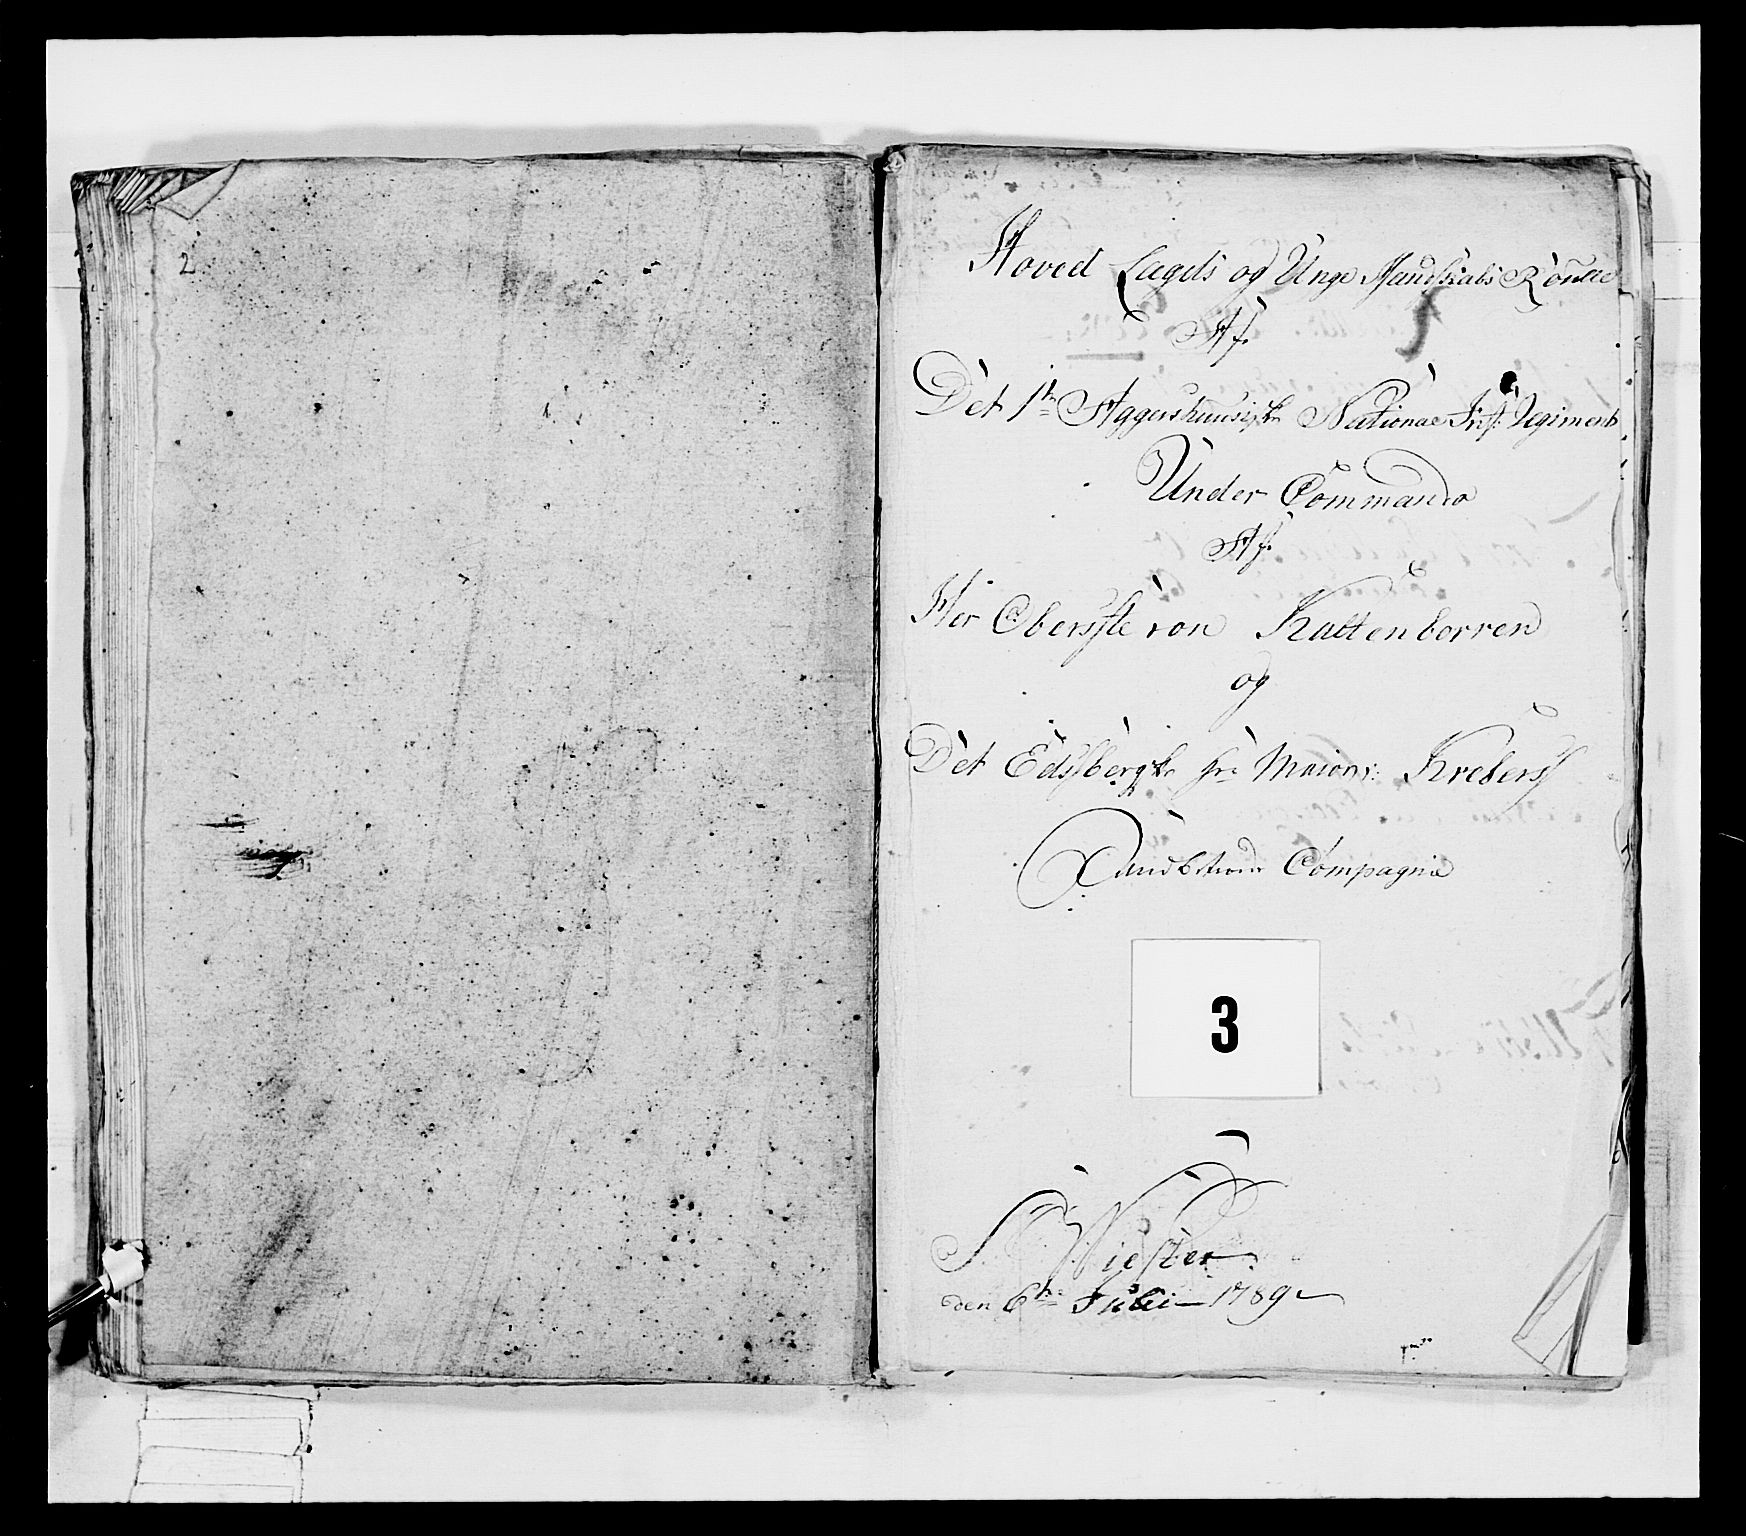 2
Hoved Lægds og Unge Mandskabs Roulle
Af
Det 1te Aggershuusiske National Inf: Regiment
Under Commando
Af
Her Oberste von Kaltenborren
og
Det Edsbergske hr: Maior: Krebers
Compagnie
3
den 6te Julii 1789